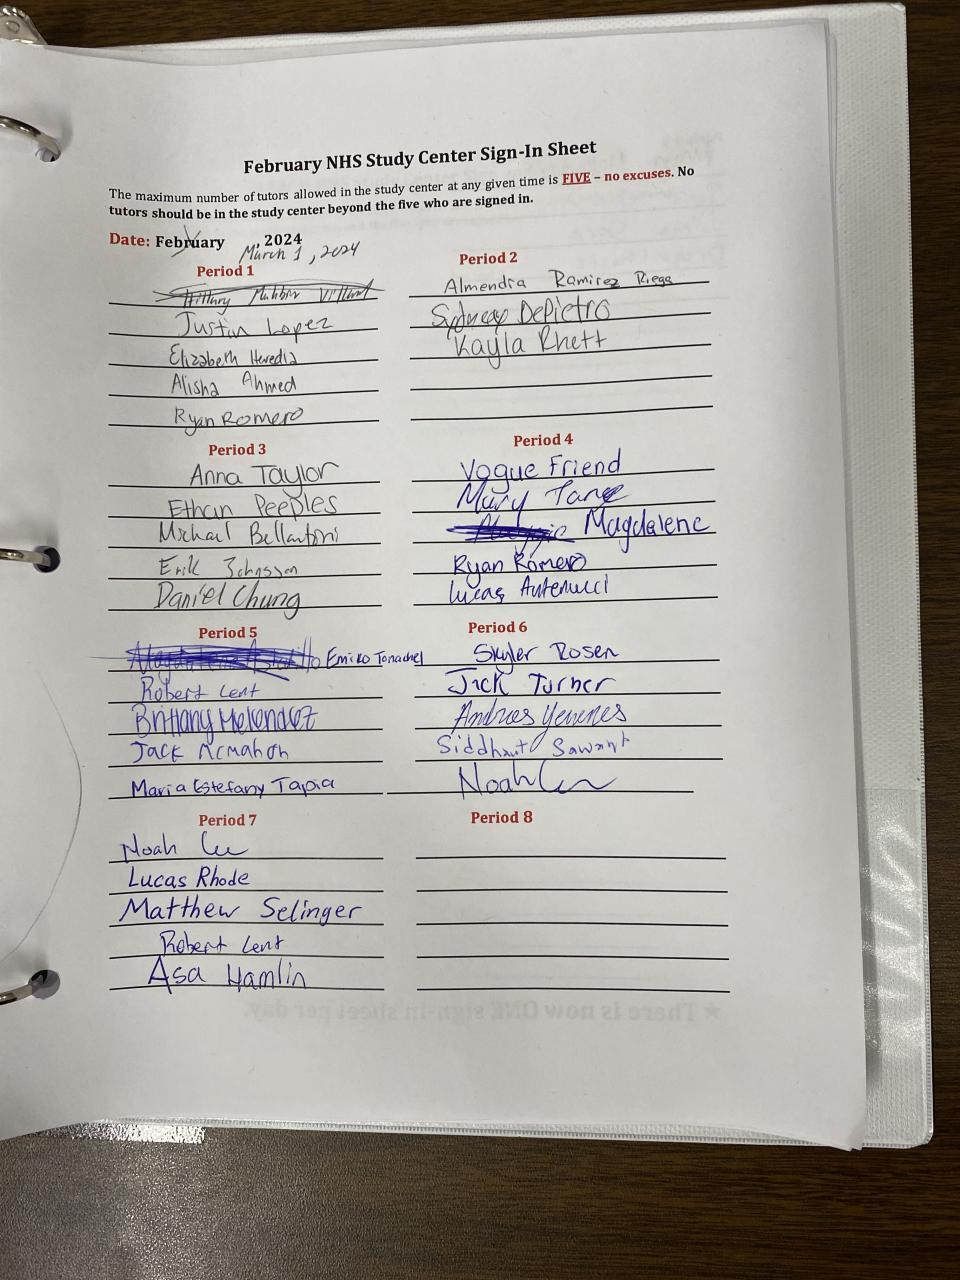 February NHS Study Center Sign-In Sheet
The maximum number of tutors allowed in the study center at any given time is FIVE – no excuses. No
tutors should be in the study center beyond the five who are signed in.
Date: February , 2024
March 1, 2024
Period 1
Justin Lopez
Elizabeth Heredia
Alisha Ahmed
Ryan Romero
Period 2
Almendra Ramirez Riega
Sydney DePietro
Kayla Rhett
Period 3
Anna Taylor
Ethan Peeples
Michael Bellantoni
Erik Johnsson
Daniel Chung
Period 4
Vogue Friend
Mary Tang
Magdalene
Ryan Romero
Lucas Antenucci
Period 5
Emiko Tonachel
Robert Lent
Brittany Melendez
Jack McMahon
Maria Estefany Tapia
Period 6
Skyler Rosen
Jack Turner
Andres Yevenes
Siddhant Sawant
Noah
Period 7
Noah
Lucas Rhode
Matthew Selinger
Robert Lent
Asa Hamlin
Period 8
★There is now ONE sign-in sheet per day.